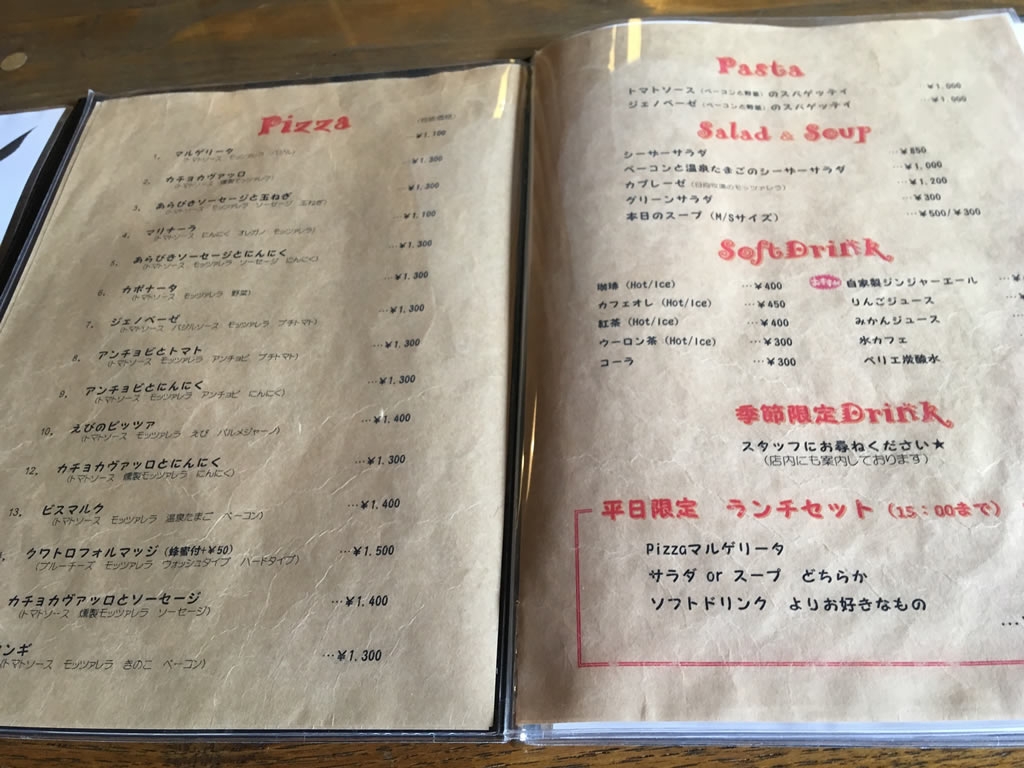 Pizza
(税抜価格)
1. マルゲリータ …¥1,100
(トマトソース モッツァレラ バジル)
2. カチョカヴァッロ …¥1,300
(トマトソース 燻製モッツァレラ)
3. あらびきソーセージと玉ねぎ …¥1,300
(トマトソース モッツァレラ ソーセージ 玉ねぎ)
4. マリナーラ …¥1,100
(トマトソース にんにく オレガノ モッツァレラ)
5. あらびきソーセージとにんにく …¥1,300
(トマトソース モッツァレラ ソーセージ にんにく)
6. カポナータ …¥1,300
(トマトソース モッツァレラ 野菜)
7. ジェノベーゼ …¥1,300
(トマトソース バジルソース モッツァレラ プチトマト)
8. アンチョビとトマト …¥1,300
(トマトソース モッツァレラ アンチョビ プチトマト)
9. アンチョビとにんにく …¥1,300
(トマトソース モッツァレラ アンチョビ にんにく)
10. えびのピッツァ …¥1,400
(トマトソース モッツァレラ えび パルメジャーノ)
12. カチョカヴァッロとにんにく …¥1,300
(トマトソース 燻製モッツァレラ にんにく)
13. ビスマルク …¥1,400
(トマトソース モッツァレラ 温泉たまご ベーコン)
クワトロフォルマッジ (蜂蜜付+¥50) …¥1,500
(ブルーチーズ モッツァレラ ウォッシュタイプ ハードタイプ)
カチョカヴァッロとソーセージ …¥1,400
(トマトソース 燻製モッツァレラ ソーセージ)
ンギ …¥1,300
(トマトソース モッツァレラ きのこ ベーコン)
Pasta
トマトソース (ベーコンと野菜) のスパゲッティ ¥1,000
ジェノベーゼ (ベーコンと野菜) のスパゲッティ …¥1,000
Salad & Soup
シーザーサラダ …¥850
ベーコンと温泉たまごのシーザーサラダ …¥1,000
カプレーゼ (日向牧場のモッツァレラ) …¥1,200
グリーンサラダ …¥300
本日のスープ (M/Sサイズ) …¥500/¥300
SoftDrink
珈琲 (Hot/Ice) …¥400
カフェオレ (Hot/Ice) …¥450
紅茶 (Hot/Ice) …¥400
ウーロン茶 (Hot/Ice) …¥300
コーラ …¥300
おすすめ 自家製ジンジャーエール
りんごジュース
みかんジュース
氷カフェ
ペリエ炭酸水
季節限定Drink
スタッフにお尋ねください★
(店内にも案内しております)
平日限定 ランチセット (15:00まで)
Pizzaマルゲリータ
サラダ or スープ どちらか
ソフトドリンク よりお好きなもの